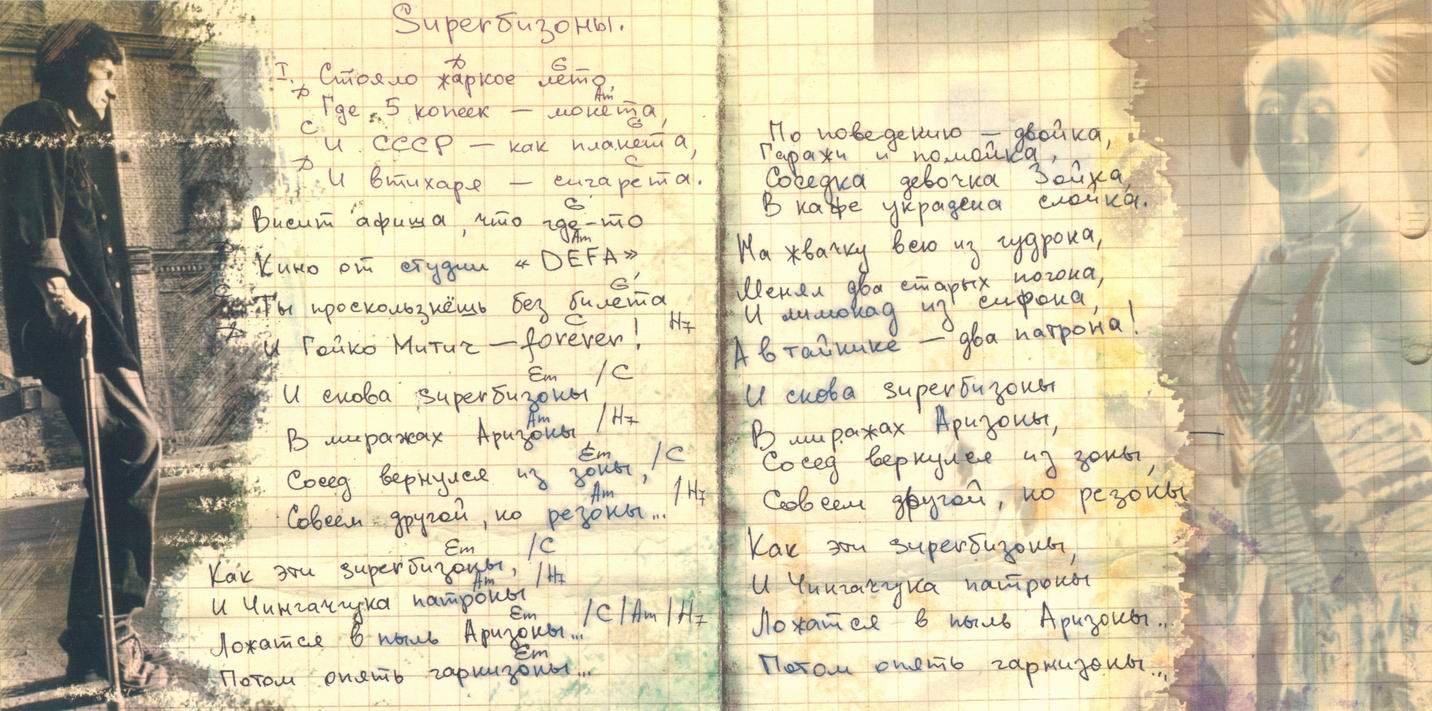 Superбизоны.
I. D G
Стояло жаркое лето,
D Am
Где 5 копеек — монета,
C G
И СССР — как планета,
D C
И втихаря — сигарета.
G
Висит афиша, что где-то
Am
Кино от студии «DEFA»,
G
Ты проскользнёшь без билета
C H7
И Гойко Митич — forever!
Em /C
И снова superбизоны
Am /H7
В миражах Аризоны
Em /C
Сосед вернулся из зоны,
Am /H7
Совсем другой, но резоны...
Em /C
Как эти superбизоны,
Am /H7
И Чингачгука патроны
Em /C/Am/H7
Ложатся в пыль Аризоны...
Em
Потом опять гарнизоны...
По поведению — двойка,
Гаражи и помойка,
Соседка девочка Зойка,
В кафе украдена слойка.
На жвачку всю из гудрона,
Менял два старых погона,
И лимонад из сифона,
А в тайнике — два патрона!
И снова superбизоны
В миражах Аризоны,
Сосед вернулся из зоны,
Совсем другой, но резоны
Как эти superбизоны,
И Чингачгука патроны
Ложатся в пыль Аризоны...
Потом опять гарнизоны...